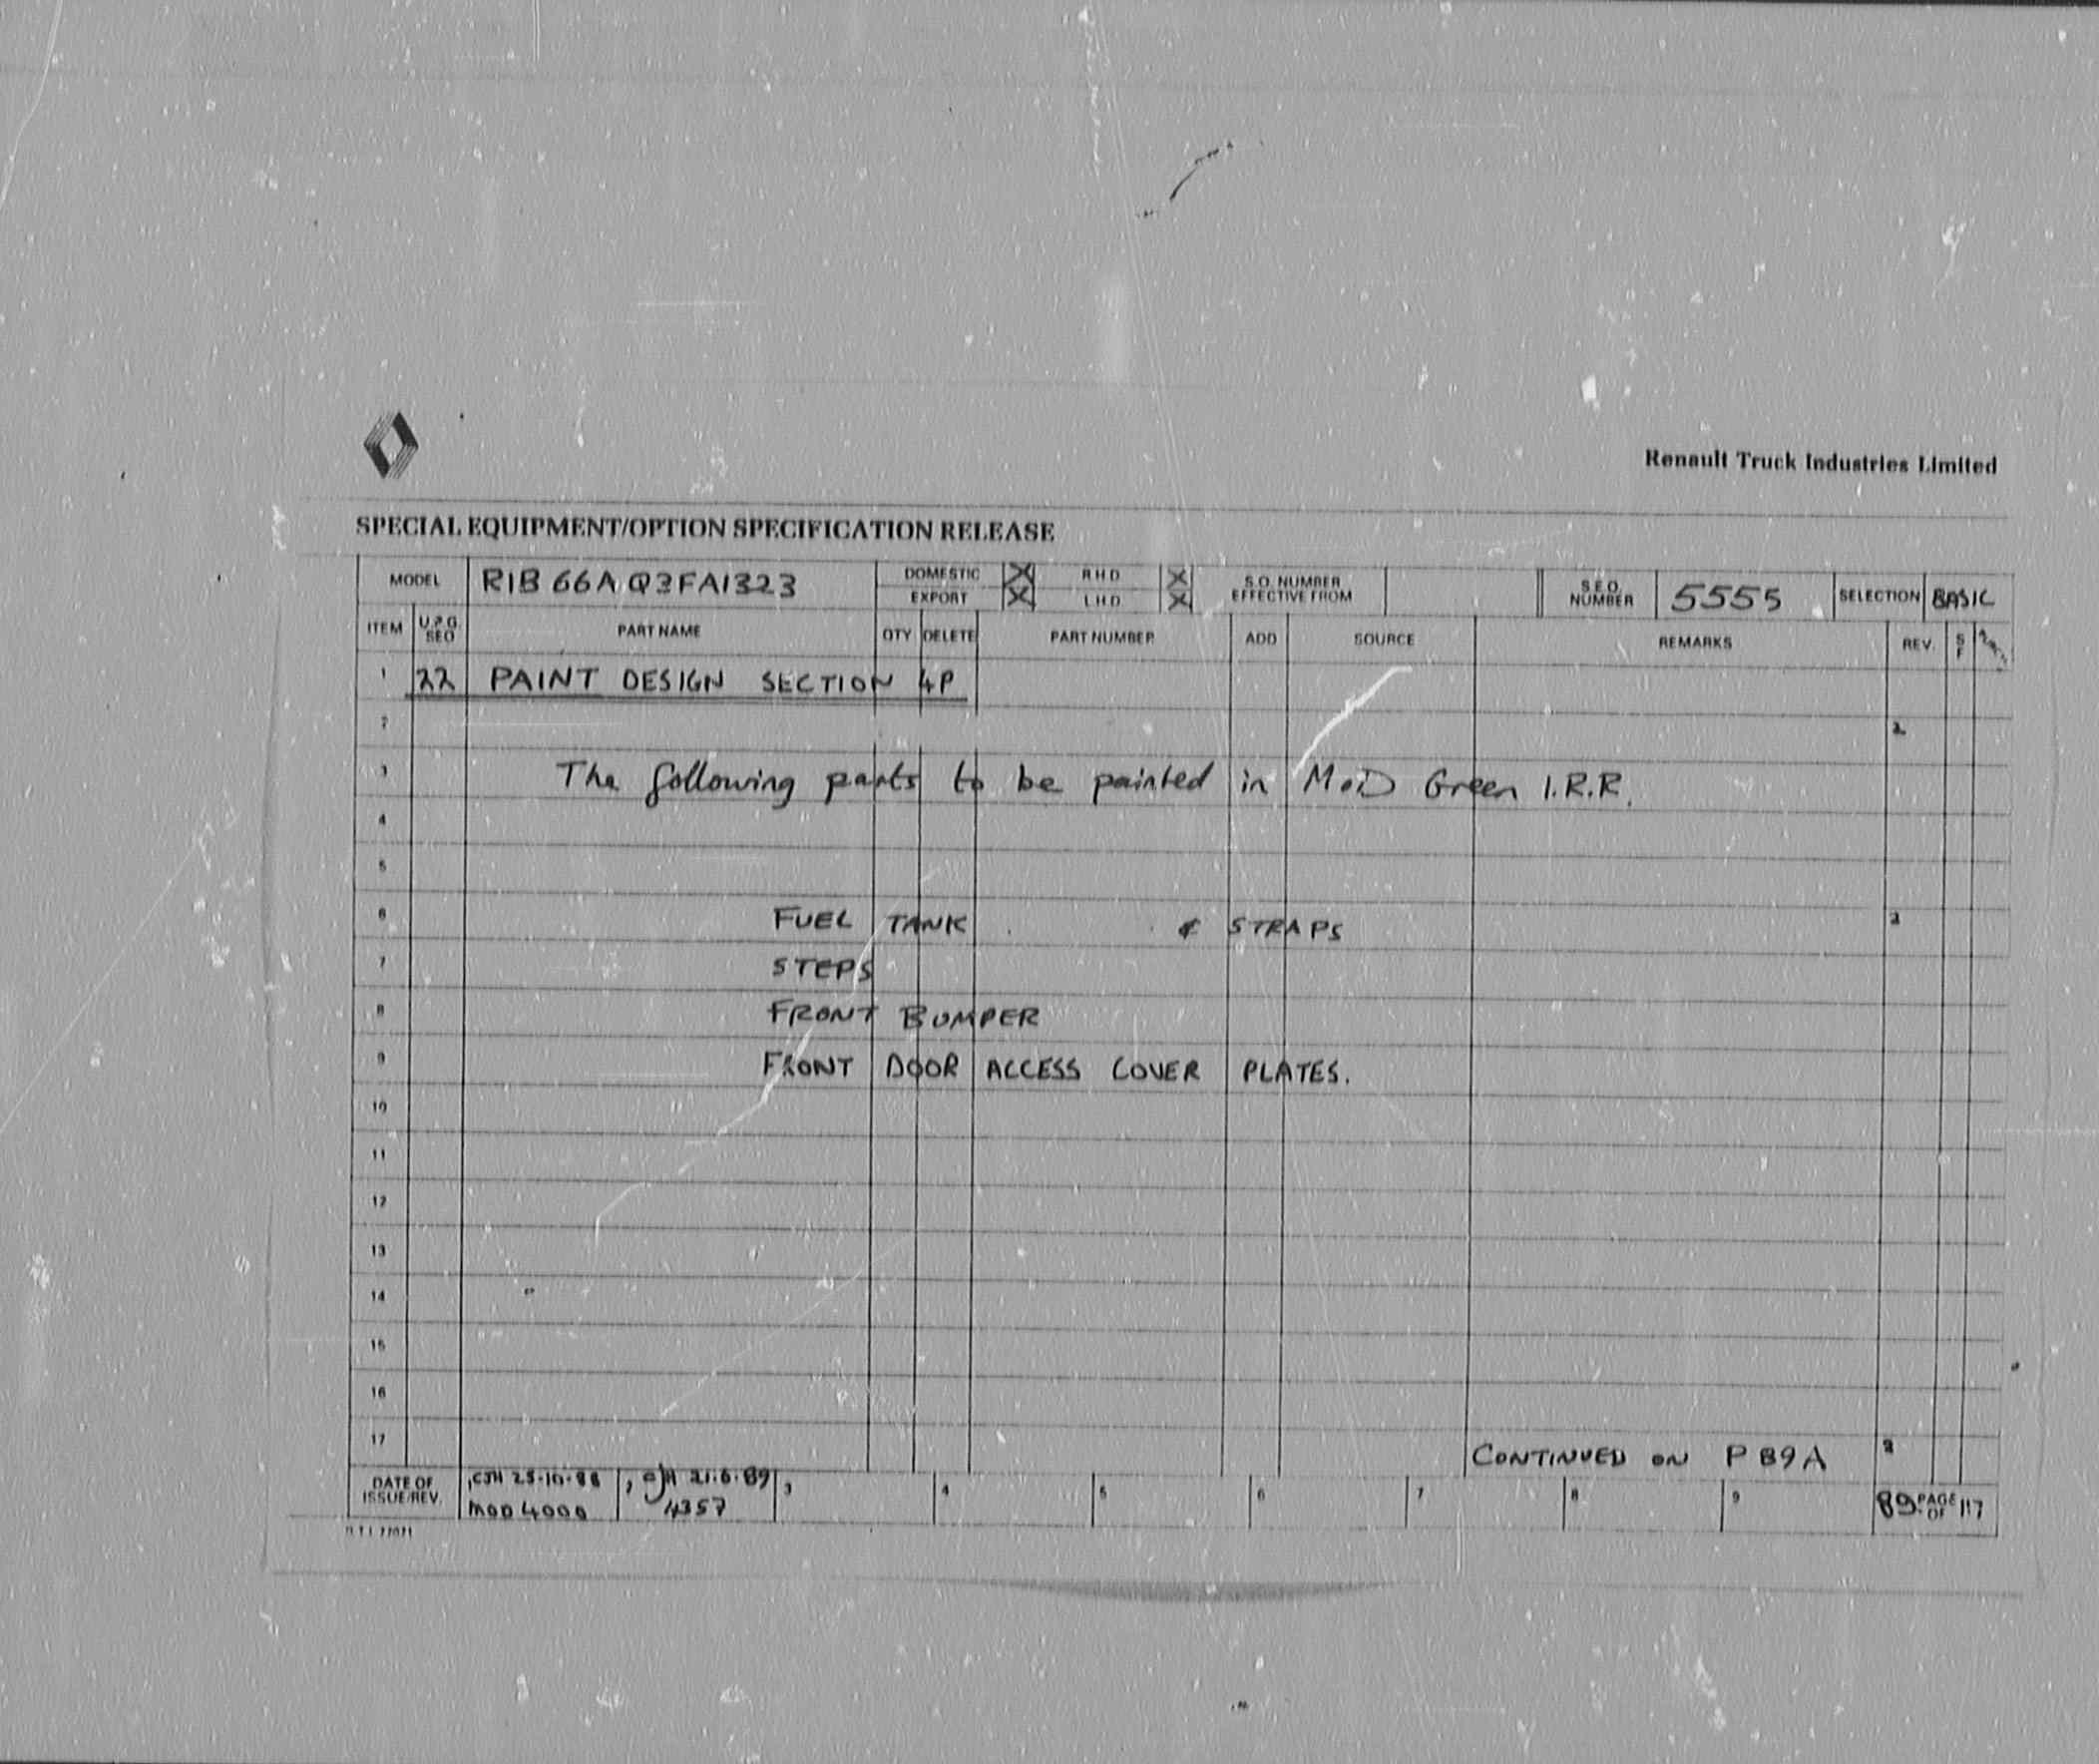 Renault Truck Industries Limited
SPECIAL EQUIPMENT/OPTION SPECIFICATION RELEASE
MODEL R1B66AQ3FA1323 DOMESTIC X RHD X S.O. NUMBER EFFECTIVE FROM S.E.O. NUMBER 5555 SELECTION BASIC
EXPORT X LHD X
ITEM U.P.G. SEO PART NAME QTY DELETE PART NUMBER ADD SOURCE REMARKS REV. S F
1 22 PAINT DESIGN SECTION 4P
2 2
3 The following parts to be painted in MoD Green I.R.R.
4
5
6 FUEL TANK & STRAPS 2
7 STEPS
8 FRONT BUMPER
9 FRONT DOOR ACCESS COVER PLATES.
10
11
12
13
14
15
16
17 CONTINUED ON P 89A 2
DATE OF ISSUE/REV. 1 CJH 25-10-88 21.6.89 3 4 5 6 7 8 9 89 PAGE OF 117
MOD 4000 4357